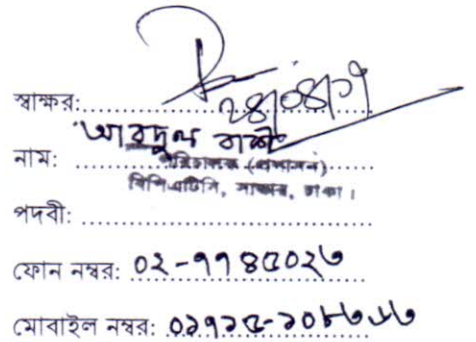 স্বাক্ষর:
২৪/০৪/১৭
নাম: আবদুল বাকী
পরিচালক (প্রশাসন)
বিপিএটিসি, সাভার, ঢাকা।
পদবী:
ফোন নম্বর: ০২-৭৭৪৫০২৩
মোবাইল নম্বর: